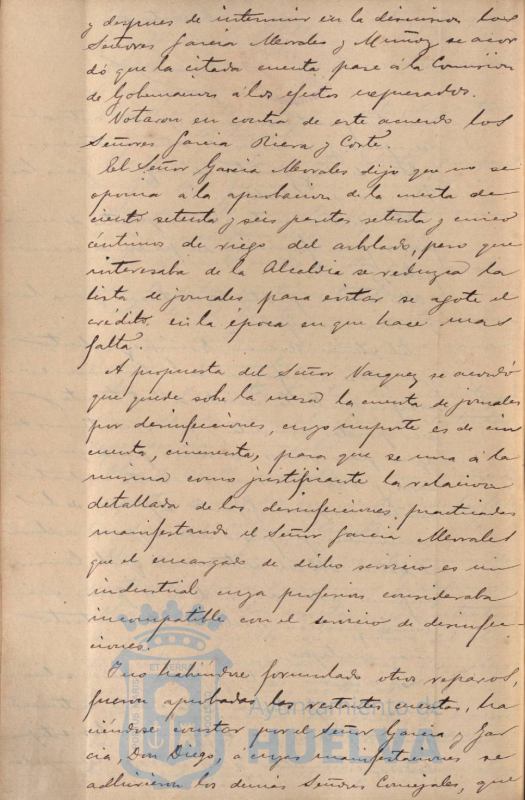 y despues de intervenir en la discusion los
Señores Garcia Morales y Muñoz se acor
dó que la citada cuenta pase á la Comision
de Gobernacion á los efectos expresados.
Votaron en contra de este acuerdo los
Señores Garcia Riera y Corte.
El Señor Garcia Morales dijo que no se
oponia á la aprobacion de la cuenta de
ciento setenta y seis pesetas setenta y cinco
céntimos de riego del arbolado, pero que
interesaba de la Alcaldia se reduzca la
lista de jornales para evitar se agote el
crédito en la época en que hace mas
falta.
A propuesta del Señor Vazquez se acordó
que quede sobre la mesa la cuenta de jornales
por desinfecciones, cuyo importe es de cin
cuenta, cincuenta, para que se una á la
misma como justificante la relacion
detallada de las desinfecciones practicadas
manifestando el Señor Garcia Morales
que el encargado de dicho servicio es un
industrial cuya profesion consideraba
incompatible con el servicio de desinfec-
ciones.
Y no habiendose formulado otros reparos,
fueron aprobadas las restantes cuentas, ha
ciendose constar por el Señor Garcia y Gar
cia, Don Diego, a cuyas manifestaciones se
adhirieron los demás Señores Concejales, que
Ayuntamiento de
HUELVA